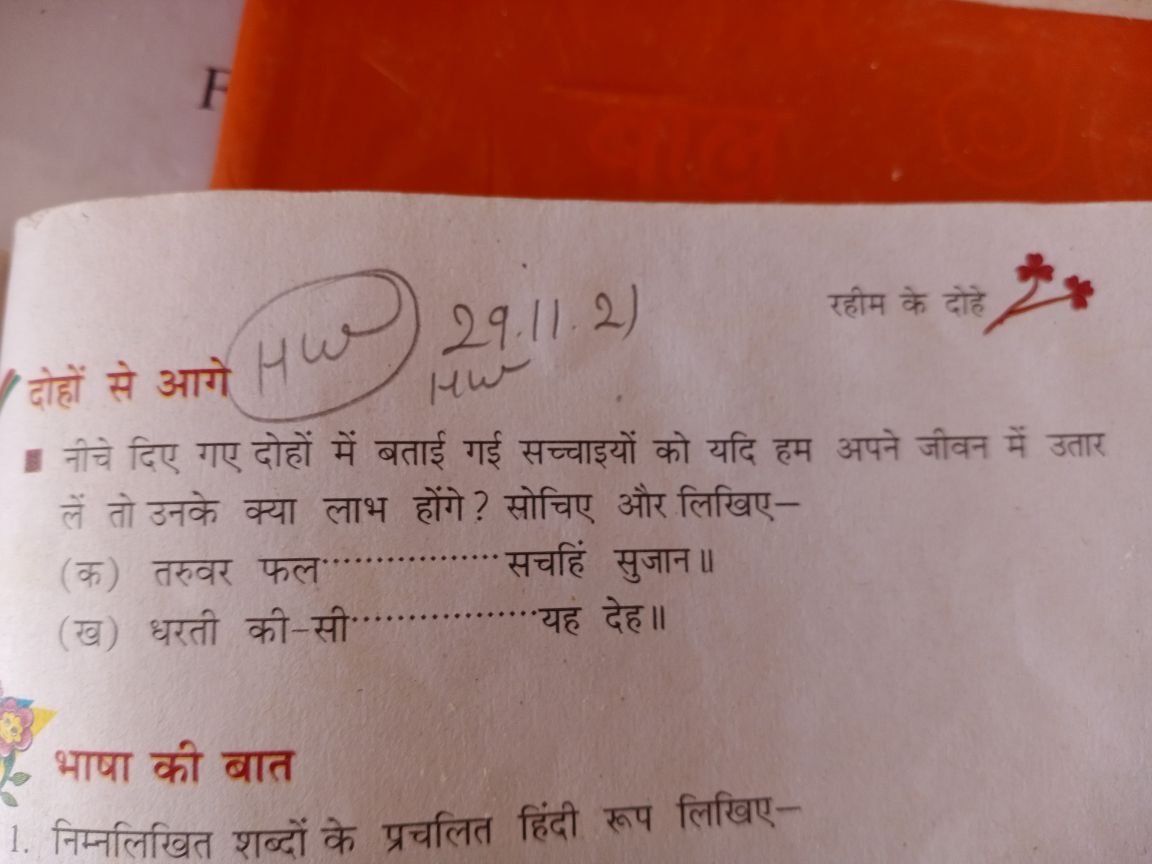 F
बाल
रहीम के दोहे
HW 29.11.21
HW
दोहों से आगे
नीचे दिए गए दोहों में बताई गई सच्चाइयों को यदि हम अपने जीवन में उतार
लें तो उनके क्या लाभ होंगे? सोचिए और लिखिए–
(क) तरुवर फल················सचहिं सुजान॥
(ख) धरती की-सी·················यह देह॥
भाषा की बात
1. निम्नलिखित शब्दों के प्रचलित हिंदी रूप लिखिए–